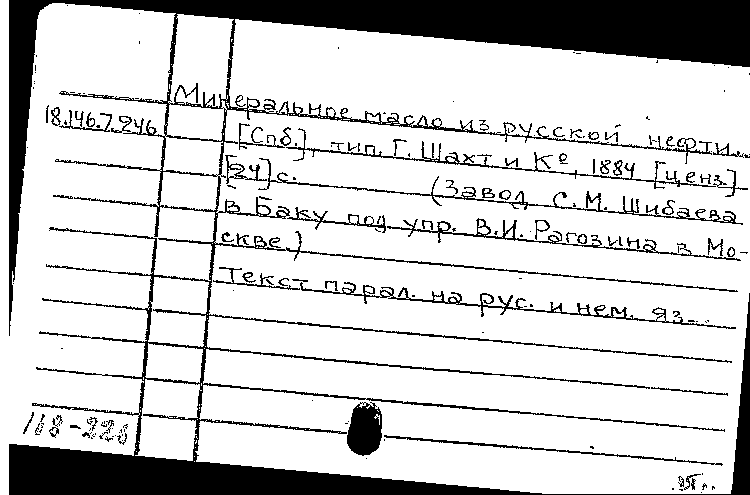 Минеральное масло из русской нефти...
18.146.7.246 [Спб.], тип. Г. Шахт и Кº, 1884 [ценз.]
[24] с. (Завод С. М. Шибаева
в Баку под упр. В. И. Рагозина в Мо-
скве.)
Текст парал. на рус. и нем. яз.
118-226